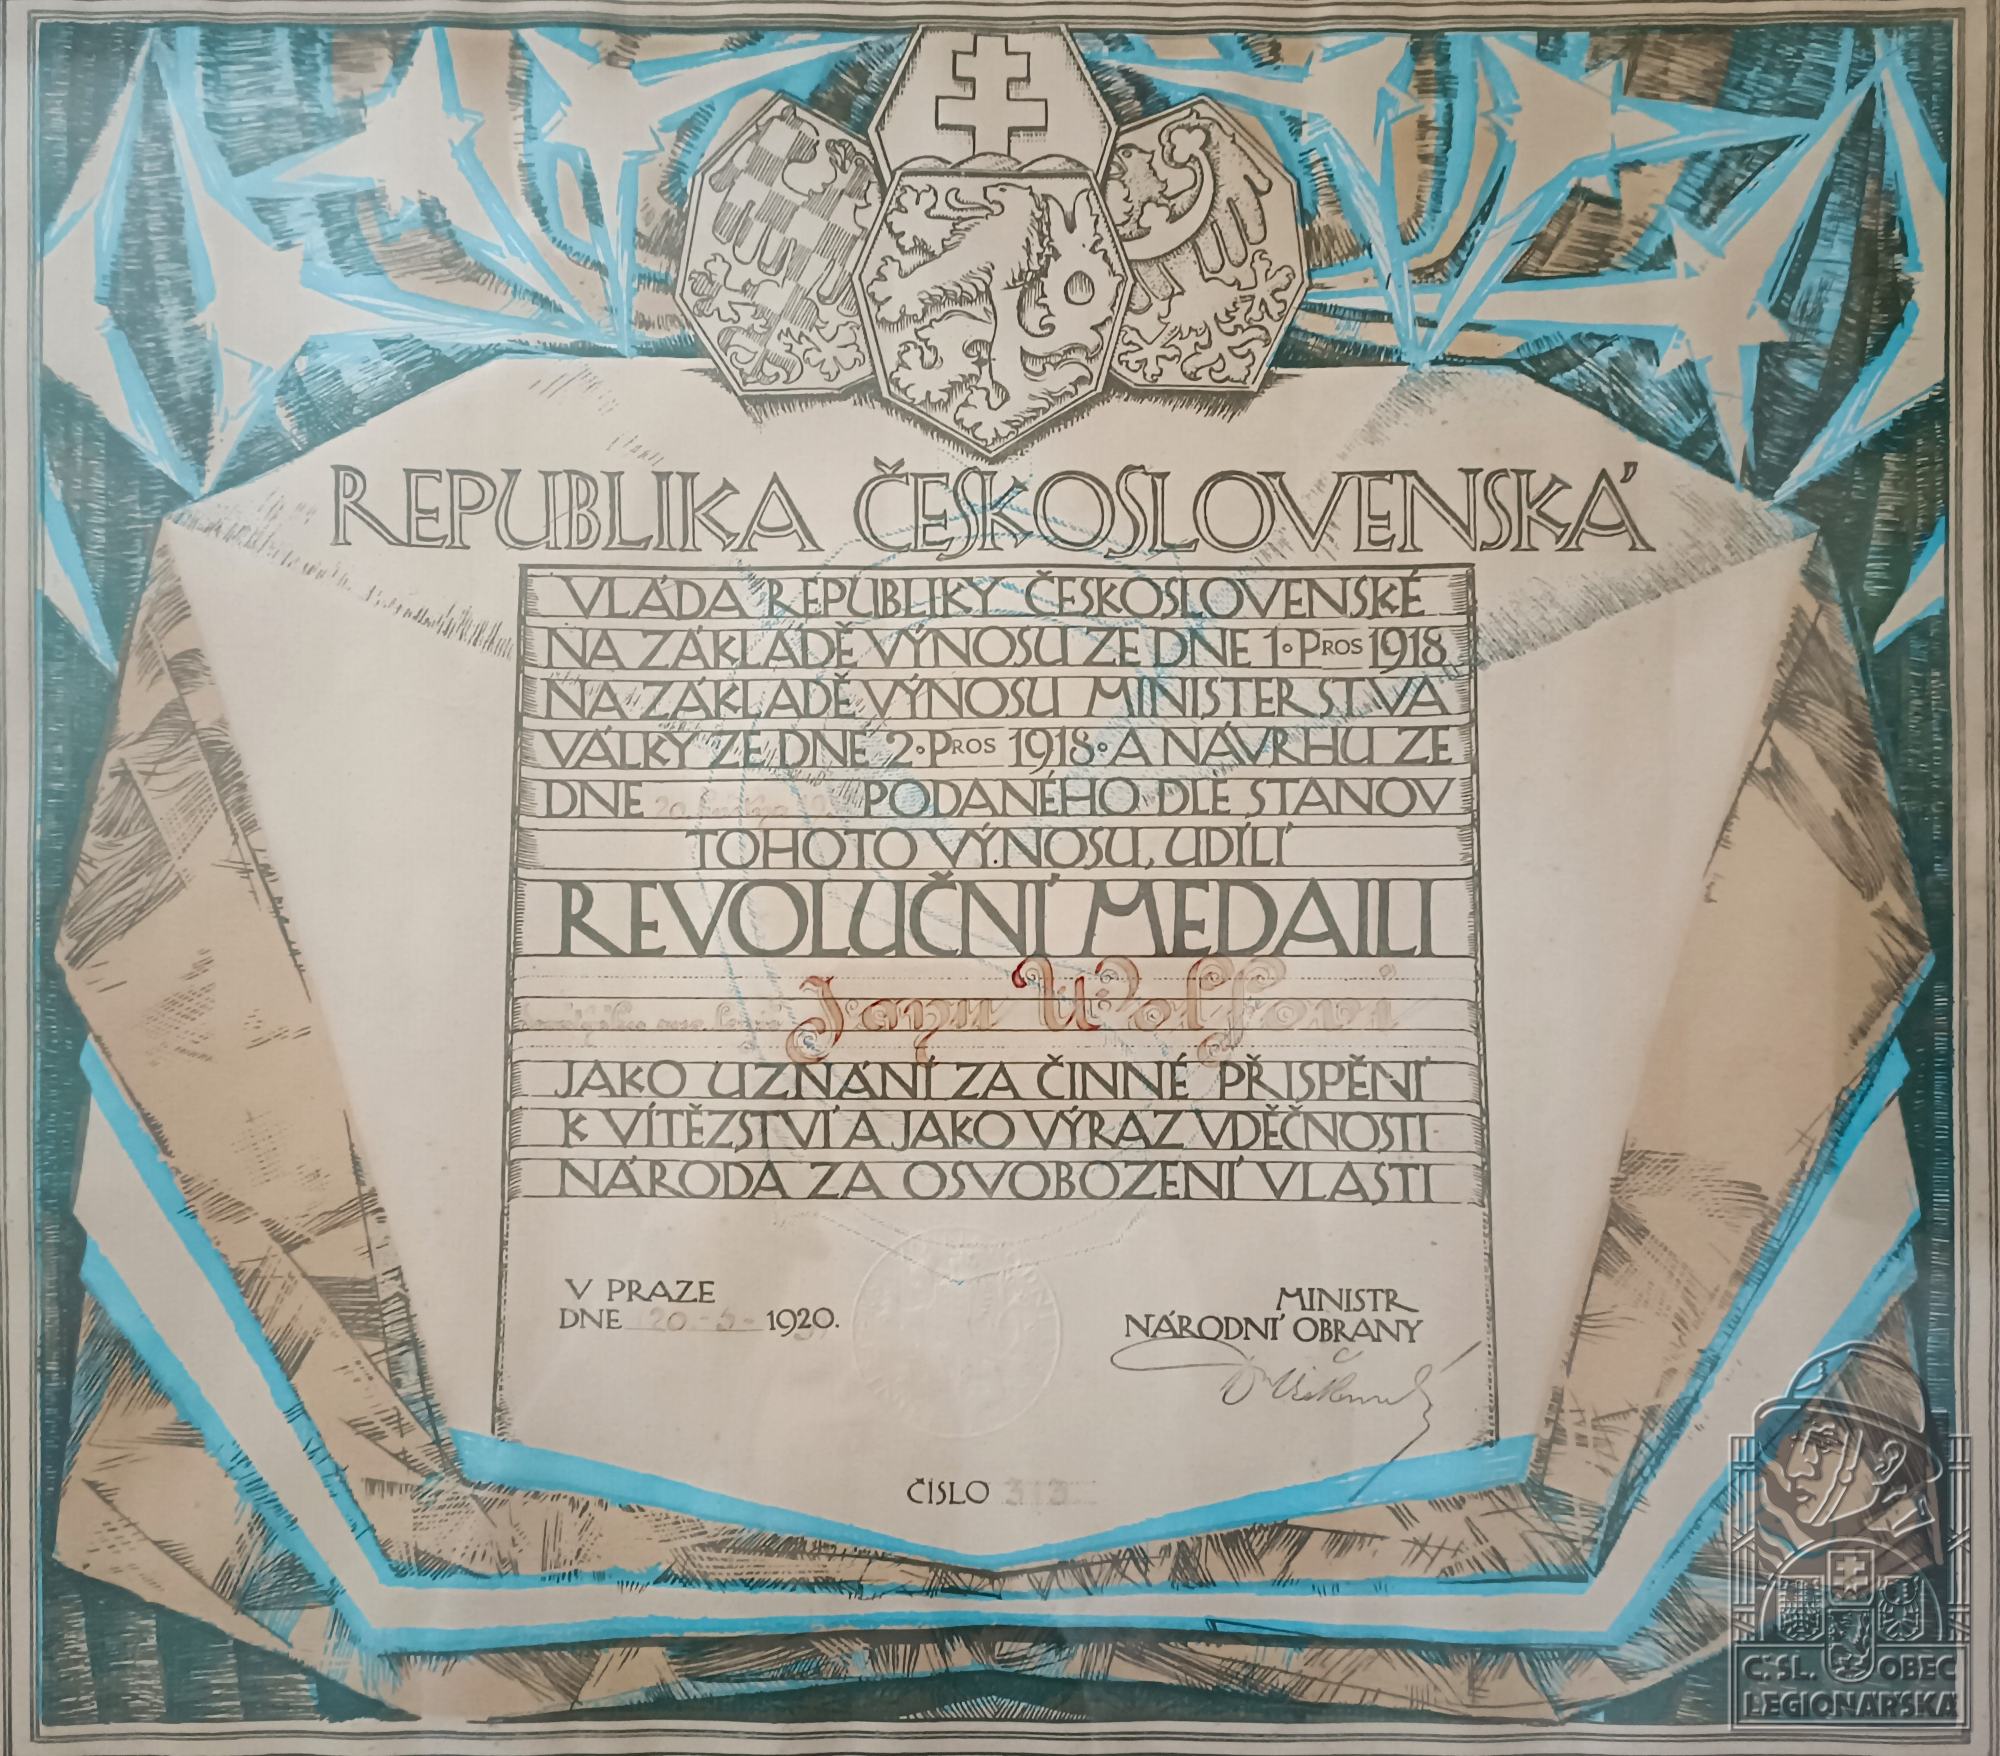 REPUBLIKA ČESKOSLOVENSKÁ
VLÁDA REPUBLIKY ČESKOSLOVENSKÉ
NA ZÁKLADĚ VÝNOSU ZE DNE 1. PROS 1918
NA ZÁKLADĚ VÝNOSU MINISTERSTVA
VÁLKY ZE DNE 2. PROS 1918. A NÁVRHU ZE
DNE 20. PODANÉHO DLE STANOV
TOHOTO VÝNOSU, UDÍLÍ
REVOLUČNÍ MEDAILI
Janu Wolfovi
JAKO UZNÁNÍ ZA ČINNÉ PŘISPĚNÍ
K VÍTĚZSTVÍ A JAKO VÝRAZ VDĚČNOSTI
NÁRODA ZA OSVOBOZENÍ VLASTI
V PRAZE
DNE 20 - 5 - 1920.
MINISTR
NÁRODNÍ OBRANY
ČÍSLO 313
Č.SL. OBEC
LEGIONÁŘSKÁ